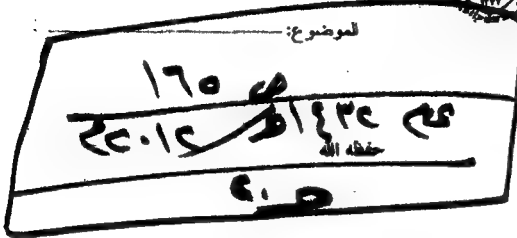 الموضوع:
ص ١٦٥
عام ١٤٣٢هـ / ٢٠١٢م
حفظه الله